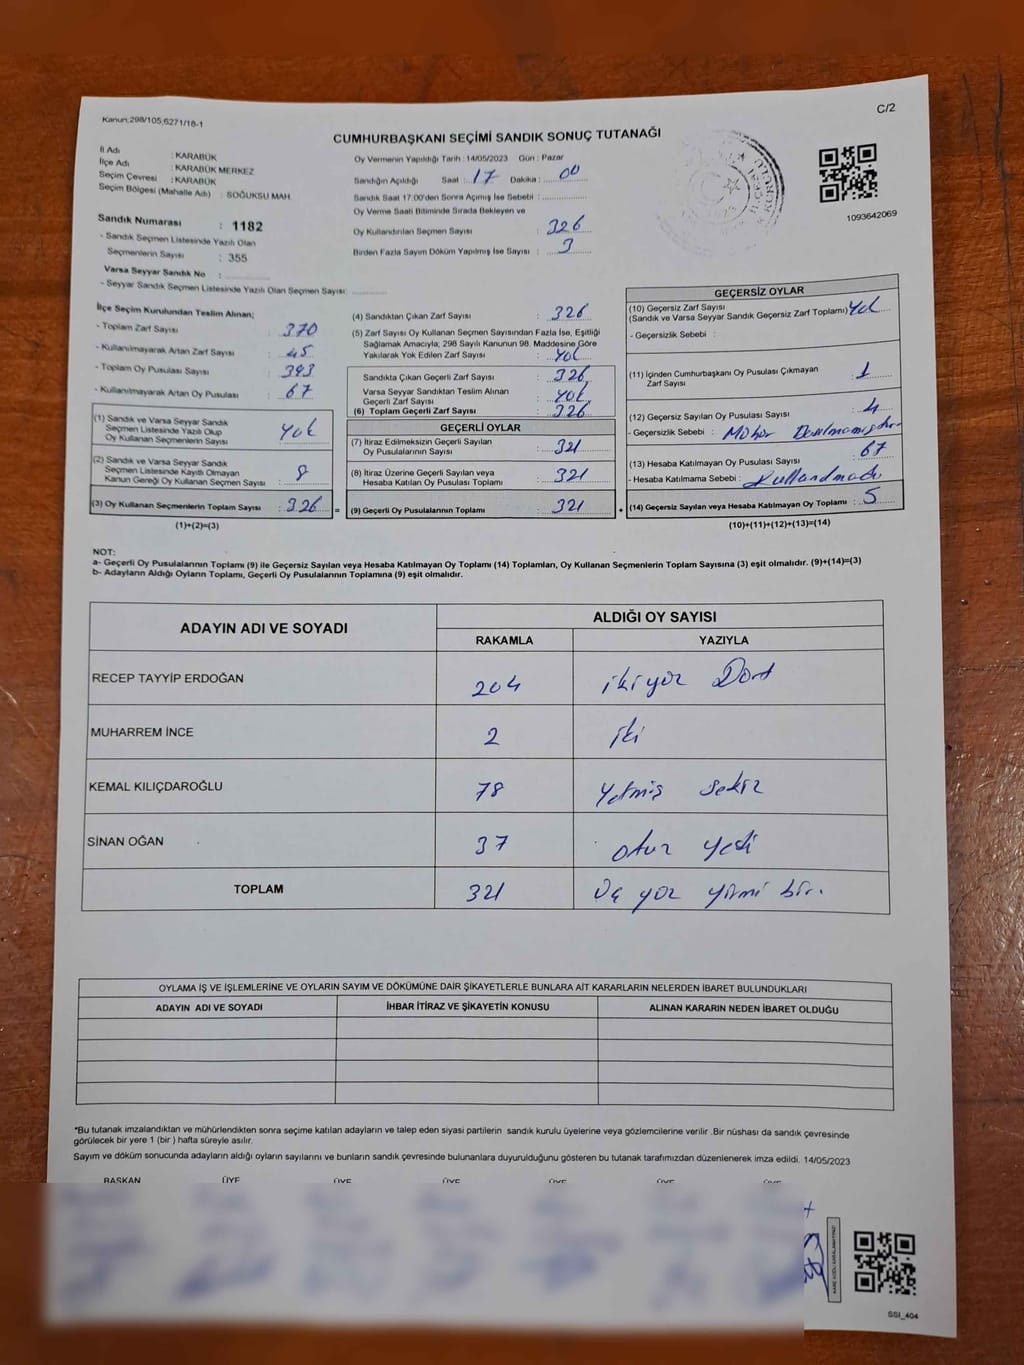 Kanun;298/105,6271/18-1
C/2
CUMHURBAŞKANI SEÇİMİ SANDIK SONUÇ TUTANAĞI
İl Adı : KARABÜK
İlçe Adı : KARABÜK MERKEZ
Seçim Çevresi : KARABÜK
Seçim Bölgesi (Mahalle Adı) : SOĞUKSU MAH.
Sandık Numarası : 1182
- Sandık Seçmen Listesinde Yazılı Olan
Seçmenlerin Sayısı : 355
Varsa Seyyar Sandık No :
- Seyyar Sandık Seçmen Listesinde Yazılı Olan Seçmen Sayısı:
Oy Vermenin Yapıldığı Tarih : 14/05/2023 Gün : Pazar
Sandığın Açıldığı Saat : 17 Dakika : 00
Sandık Saat 17:00'den Sonra Açılmış İse Sebebi :
Oy Verme Saati Bitiminde Sırada Bekleyen ve
Oy Kullandırılan Seçmen Sayısı : 326
Birden Fazla Sayım Döküm Yapılmış İse Sayısı : 3
1093642069
İlçe Seçim Kurulundan Teslim Alınan;
- Toplam Zarf Sayısı : 370
- Kullanılmayarak Artan Zarf Sayısı : 45
- Toplam Oy Pusulası Sayısı : 393
- Kullanılmayarak Artan Oy Pusulası : 67
(1) Sandık ve Varsa Seyyar Sandık
Seçmen Listesinde Yazılı Olup
Oy Kullanan Seçmenlerin Sayısı : Yok
(2) Sandık ve Varsa Seyyar Sandık
Seçmen Listesinde Kayıtlı Olmayan
Kanun Gereği Oy Kullanan Seçmen Sayısı : 8
(3) Oy Kullanan Seçmenlerin Toplam Sayısı : 326
(1)+(2)=(3)
(4) Sandıktan Çıkan Zarf Sayısı : 326
(5) Zarf Sayısı Oy Kullanan Seçmen Sayısından Fazla İse, Eşitliği
Sağlamak Amacıyla; 298 Sayılı Kanunun 98. Maddesine Göre
Yakılarak Yok Edilen Zarf Sayısı : YOK
Sandıkta Çıkan Geçerli Zarf Sayısı : 326
Varsa Seyyar Sandıktan Teslim Alınan
Geçerli Zarf Sayısı : YOK
(6) Toplam Geçerli Zarf Sayısı : 326
GEÇERLİ OYLAR
(7) İtiraz Edilmeksizin Geçerli Sayılan
Oy Pusulalarının Sayısı : 321
(8) İtiraz Üzerine Geçerli Sayılan veya
Hesaba Katılan Oy Pusulası Toplamı : 321
= (9) Geçerli Oy Pusulalarının Toplamı : 321 +
GEÇERSİZ OYLAR
(10) Geçersiz Zarf Sayısı
(Sandık ve Varsa Seyyar Sandık Geçersiz Zarf Toplamı) Yok
- Geçersizlik Sebebi :
(11) İçinden Cumhurbaşkanı Oy Pusulası Çıkmayan
Zarf Sayısı : 1
(12) Geçersiz Sayılan Oy Pusulası Sayısı : 4
- Geçersizlik Sebebi : Mühür
(13) Hesaba Katılmayan Oy Pusulası Sayısı : 67
- Hesaba Katılmama Sebebi : Kullanılmadı
(14) Geçersiz Sayılan veya Hesaba Katılmayan Oy Toplamı : 5
(10)+(11)+(12)+(13)=(14)
NOT:
a- Geçerli Oy Pusulalarının Toplamı (9) ile Geçersiz Sayılan veya Hesaba Katılmayan Oy Toplamı (14) Toplamları, Oy Kullanan Seçmenlerin Toplam Sayısına (3) eşit olmalıdır. (9)+(14)=(3)
b- Adayların Aldığı Oyların Toplamı, Geçerli Oy Pusulalarının Toplamına (9) eşit olmalıdır.
ADAYIN ADI VE SOYADI ALDIĞI OY SAYISI
RAKAMLA YAZIYLA
RECEP TAYYİP ERDOĞAN 204 ikiyüz Dört
MUHARREM İNCE 2 iki
KEMAL KILIÇDAROĞLU 78 Yetmiş sekiz
SİNAN OĞAN 37 otuz yedi
TOPLAM 321 Üç yüz yirmi bir.
OYLAMA İŞ VE İŞLEMLERİNE VE OYLARIN SAYIM VE DÖKÜMÜNE DAİR ŞİKAYETLERLE BUNLARA AİT KARARLARIN NELERDEN İBARET BULUNDUKLARI
ADAYIN ADI VE SOYADI İHBAR İTİRAZ VE ŞİKAYETİN KONUSU ALINAN KARARIN NEDEN İBARET OLDUĞU
*Bu tutanak imzalandıktan ve mühürlendikten sonra seçime katılan adayların ve talep eden siyasi partilerin sandık kurulu üyelerine veya gözlemcilerine verilir .Bir nüshası da sandık çevresinde
görülecek bir yere 1 (bir ) hafta süreyle asılır.
Sayım ve döküm sonucunda adayların aldığı oyların sayılarını ve bunların sandık çevresinde bulunanlara duyurulduğunu gösteren bu tutanak tarafımızdan düzenlenerek imza edildi. 14/05/2023
BAŞKAN ÜYE ÜYE ÜYE ÜYE ÜYE ÜYE
SSI_404